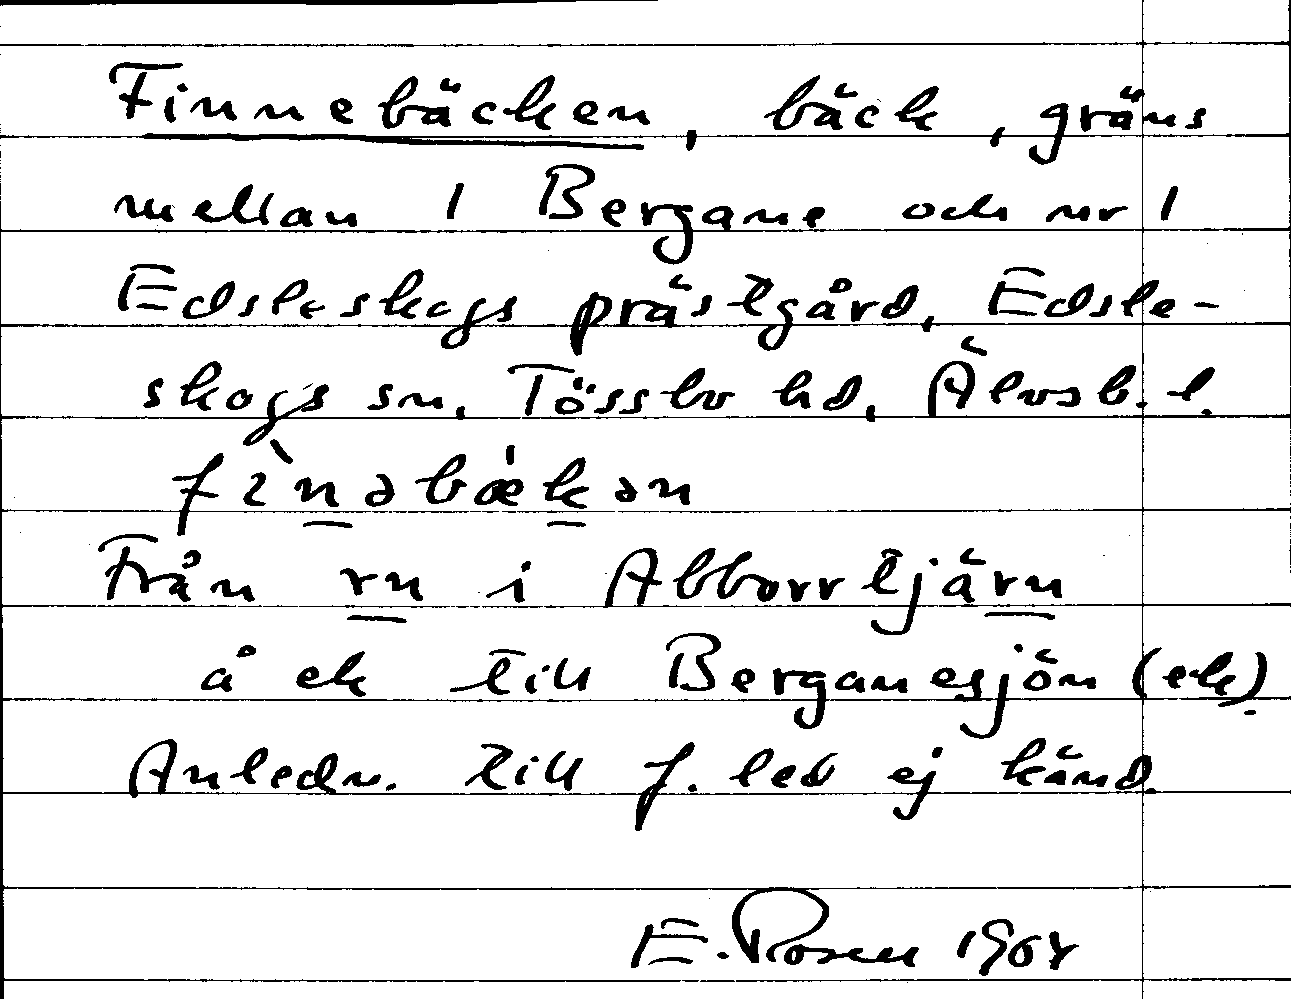 Finnebäcken, bäck, gräns
mellan 1 Bergane och nr 1
Edsleskogs prästgård, Edsle-
skogs sn, Tössbo hd, Älvsb. l.
fìnəbækən
Från rn i Abborrtjärn
å ek till Berganesjön (ek).
Anledn. till f. led ej känd.
E. Rosen 1964